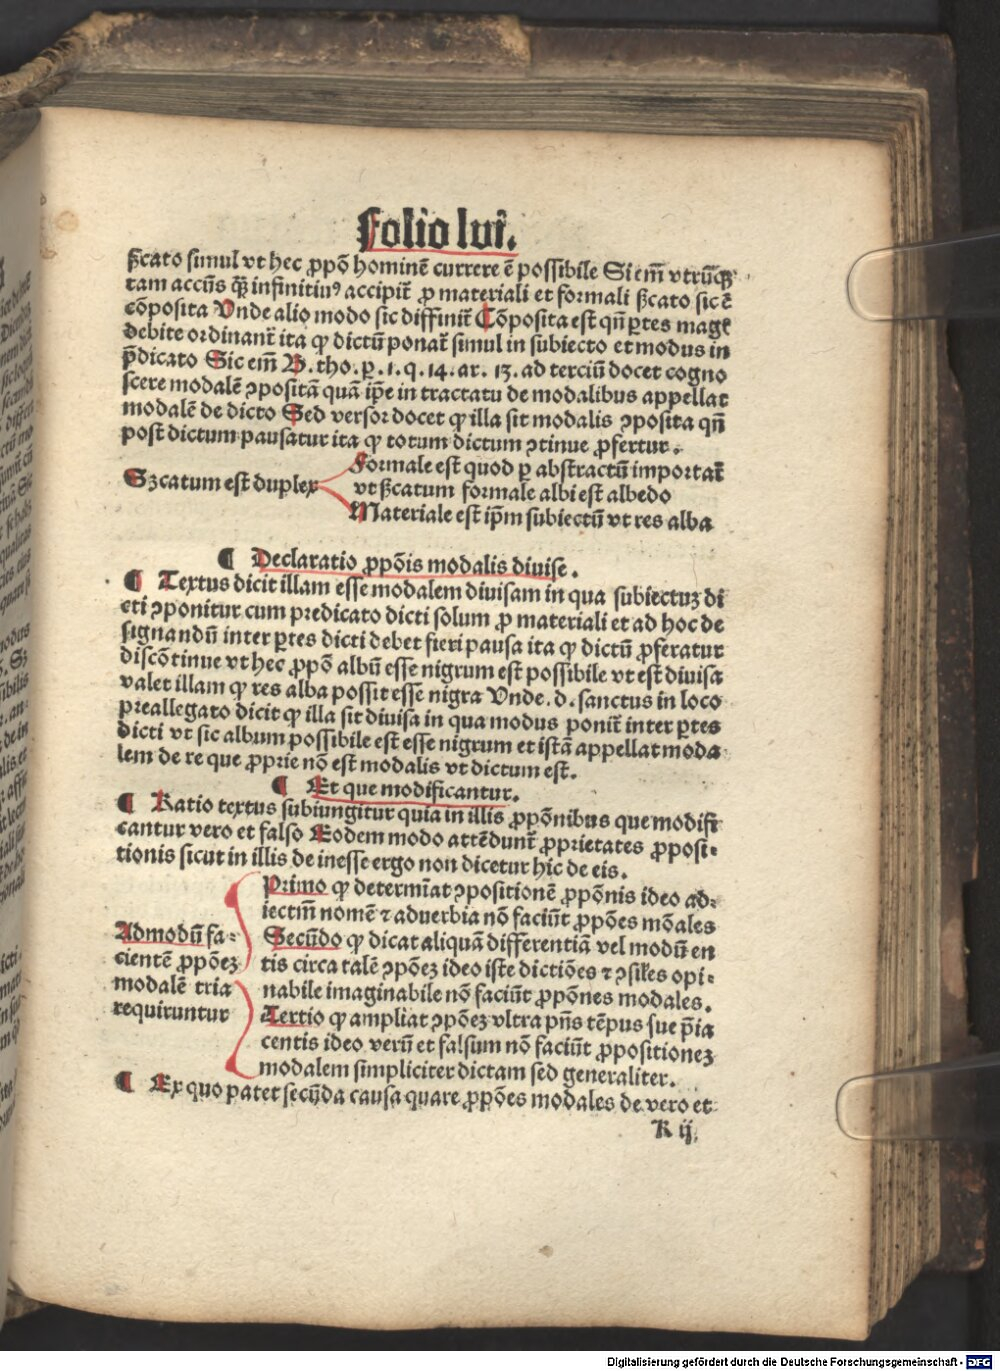 Folio lvi.
ſcato simul vt hec ꝓpõ hominẽ currere ẽ poſſibile Si em̃ vtrũqꝫ
tam accũs qᷓꝫ infinitiuꝰ accipit̃ ꝓ materiali et formali ſcato sic ẽ
cõposita Vnde alio modo sic diffinit̃ Cõposita est qñ ꝑtes mage
debite ordinant̃ ita ꝙ dictũ ponat̃ simul in subiecto et modus in
p̃dicato Sic em̃ B. tho. ꝑ. 1. q. 14. ar. 13. ad terciũ docet cogno
scere modalẽ ꝯpositã quã ip̃e in tractatu de modalibus appellat
modalẽ de dicto Sed versor docet ꝙ illa sit modalis ꝯposita qñ
post dictum pausatur ita ꝙ totum dictum ꝯtinue ꝓfertur.
Sꝫcatum est duplex
Formale est quod ꝑ abstractũ importat̃
vt ſcatum formale albi est albedo
Materiale est ip̃m subiectũ vt res alba
¶ Declaratio ꝓpõis modalis diuise.
¶ Textus dicit illam esse modalem diuisam in qua subiectuꝫ di
cti ꝯponitur cum predicato dicti solum ꝓ materiali et ad hoc de
signandũ inter ꝑtes dicti debet fieri pausa ita ꝙ dictũ ꝓferatur
discõtinue vt hec ꝓpõ albũ esse nigrum est possibile vt est diuisa
valet illam ꝙ res alba possit esse nigra Vnde .d. sanctus in loco
preallegato dicit ꝙ illa sit diuisa in qua modus ponit̃ inter ꝑtes
dicti vt sic album possibile est esse nigrum et istã appellat moda
lem de re que ꝓprie nõ est modalis vt dictum est.
¶ Et que modificantur.
¶ Ratio textus subiungitur quia in illis ꝓpõnibus que modifi
cantur vero et falso Eodem modo attẽdunt̃ ꝓprietates ꝓposi-
tionis sicut in illis de inesse ergo non dicetur hic de eis.
Ad modũ fa-
cientẽ ꝓpõeꝫ
modalẽ tria
requiruntur
Primo ꝙ determĩat ꝯpositionẽ ꝓpõnis ideo ad-
iectiũ nomẽ ⁊ aduerbia nõ faciũt ꝓpões mõales
Secũdo ꝙ dicat aliquã differentiã vel modũ en
tis circa talẽ ꝯpõeꝫ ideo iste dictiões ⁊ ꝯsiles opi-
nabile imaginabile nõ faciũt ꝓpõnes modales.
Tertio ꝙ ampliat ꝯpõeꝫ vltra pñs tẽpus sue p̃ia
centis ideo verũ et falsum nõ faciũt ꝓpositioneꝫ
modalem simpliciter dictam sed generaliter.
¶ Ex quo patet secũda causa quare ꝓpões modales de vero et
K ij.
Digitalisierung gefördert durch die Deutsche Forschungsgemeinschaft - DFG